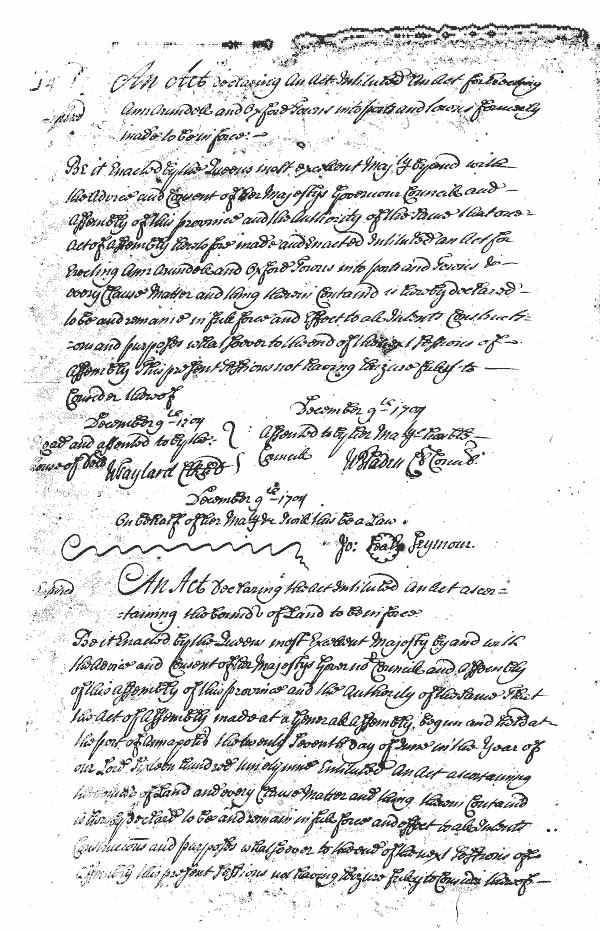 14
An Act Declaring An Act Intituled An Act for Erecting
expired
Ann Arundell and Oxford Towns into ports and Towns formerly
made to be in force. —
Be it Enacted by the Queens most excellent Maj.ty by and with
the Advice and Consent of her Majestys Governour Councill and
Assembly of this province and the Authority of the Same that one
Act of Assembly heretofore made and Enacted Intituled an Act for
Erecting Ann Arundell and Oxford Towns into ports and Towns &
every Clause Matter and thing therein Containd is hereby declared
to be and remaine in full force and Effect to all Intents Constructi=
=ons and purposes whatsoever to the end of the next Sessions of
Assembly this present Sessions not having leizure fully to
Consider thereof
December 9th 1704
Read and assented to by the
house of Del
W Taylard Cl
December 9th 1704
Assented to by her Maj.tys honble
Councill
W Bladen Cl Concil.
December 9th 1704
On behalf of her Maj.ty &c I will this be a Law.
Jo: Seale Seymour.
expired
An Act Declaring the Act Intituled An Act ascer=
=taining the bounds of Land to be in force
Be it Enacted by the Queens most Excellent Majesty by and with
the Advice and Consent of her Majestys Govern.r Councill and Assembly
of this Assembly of this province and the Authority of the Same That
the Act of Assembly made at a Generall Assembly, begun and held at
the port of Annapolis the twenty Seventh day of June in the Year of
our Lord Sixteen hundred ninety nine Entituled An Act ascertaining
the bounds of Land and every Clause Matter and thing therein Containd
is hereby declard to be and remain in full force and effect to all Intents
Constructions and purposes whatsoever to the end of the next Sessions of
Assembly this present Sessions not having leizure fully to Consider thereof —